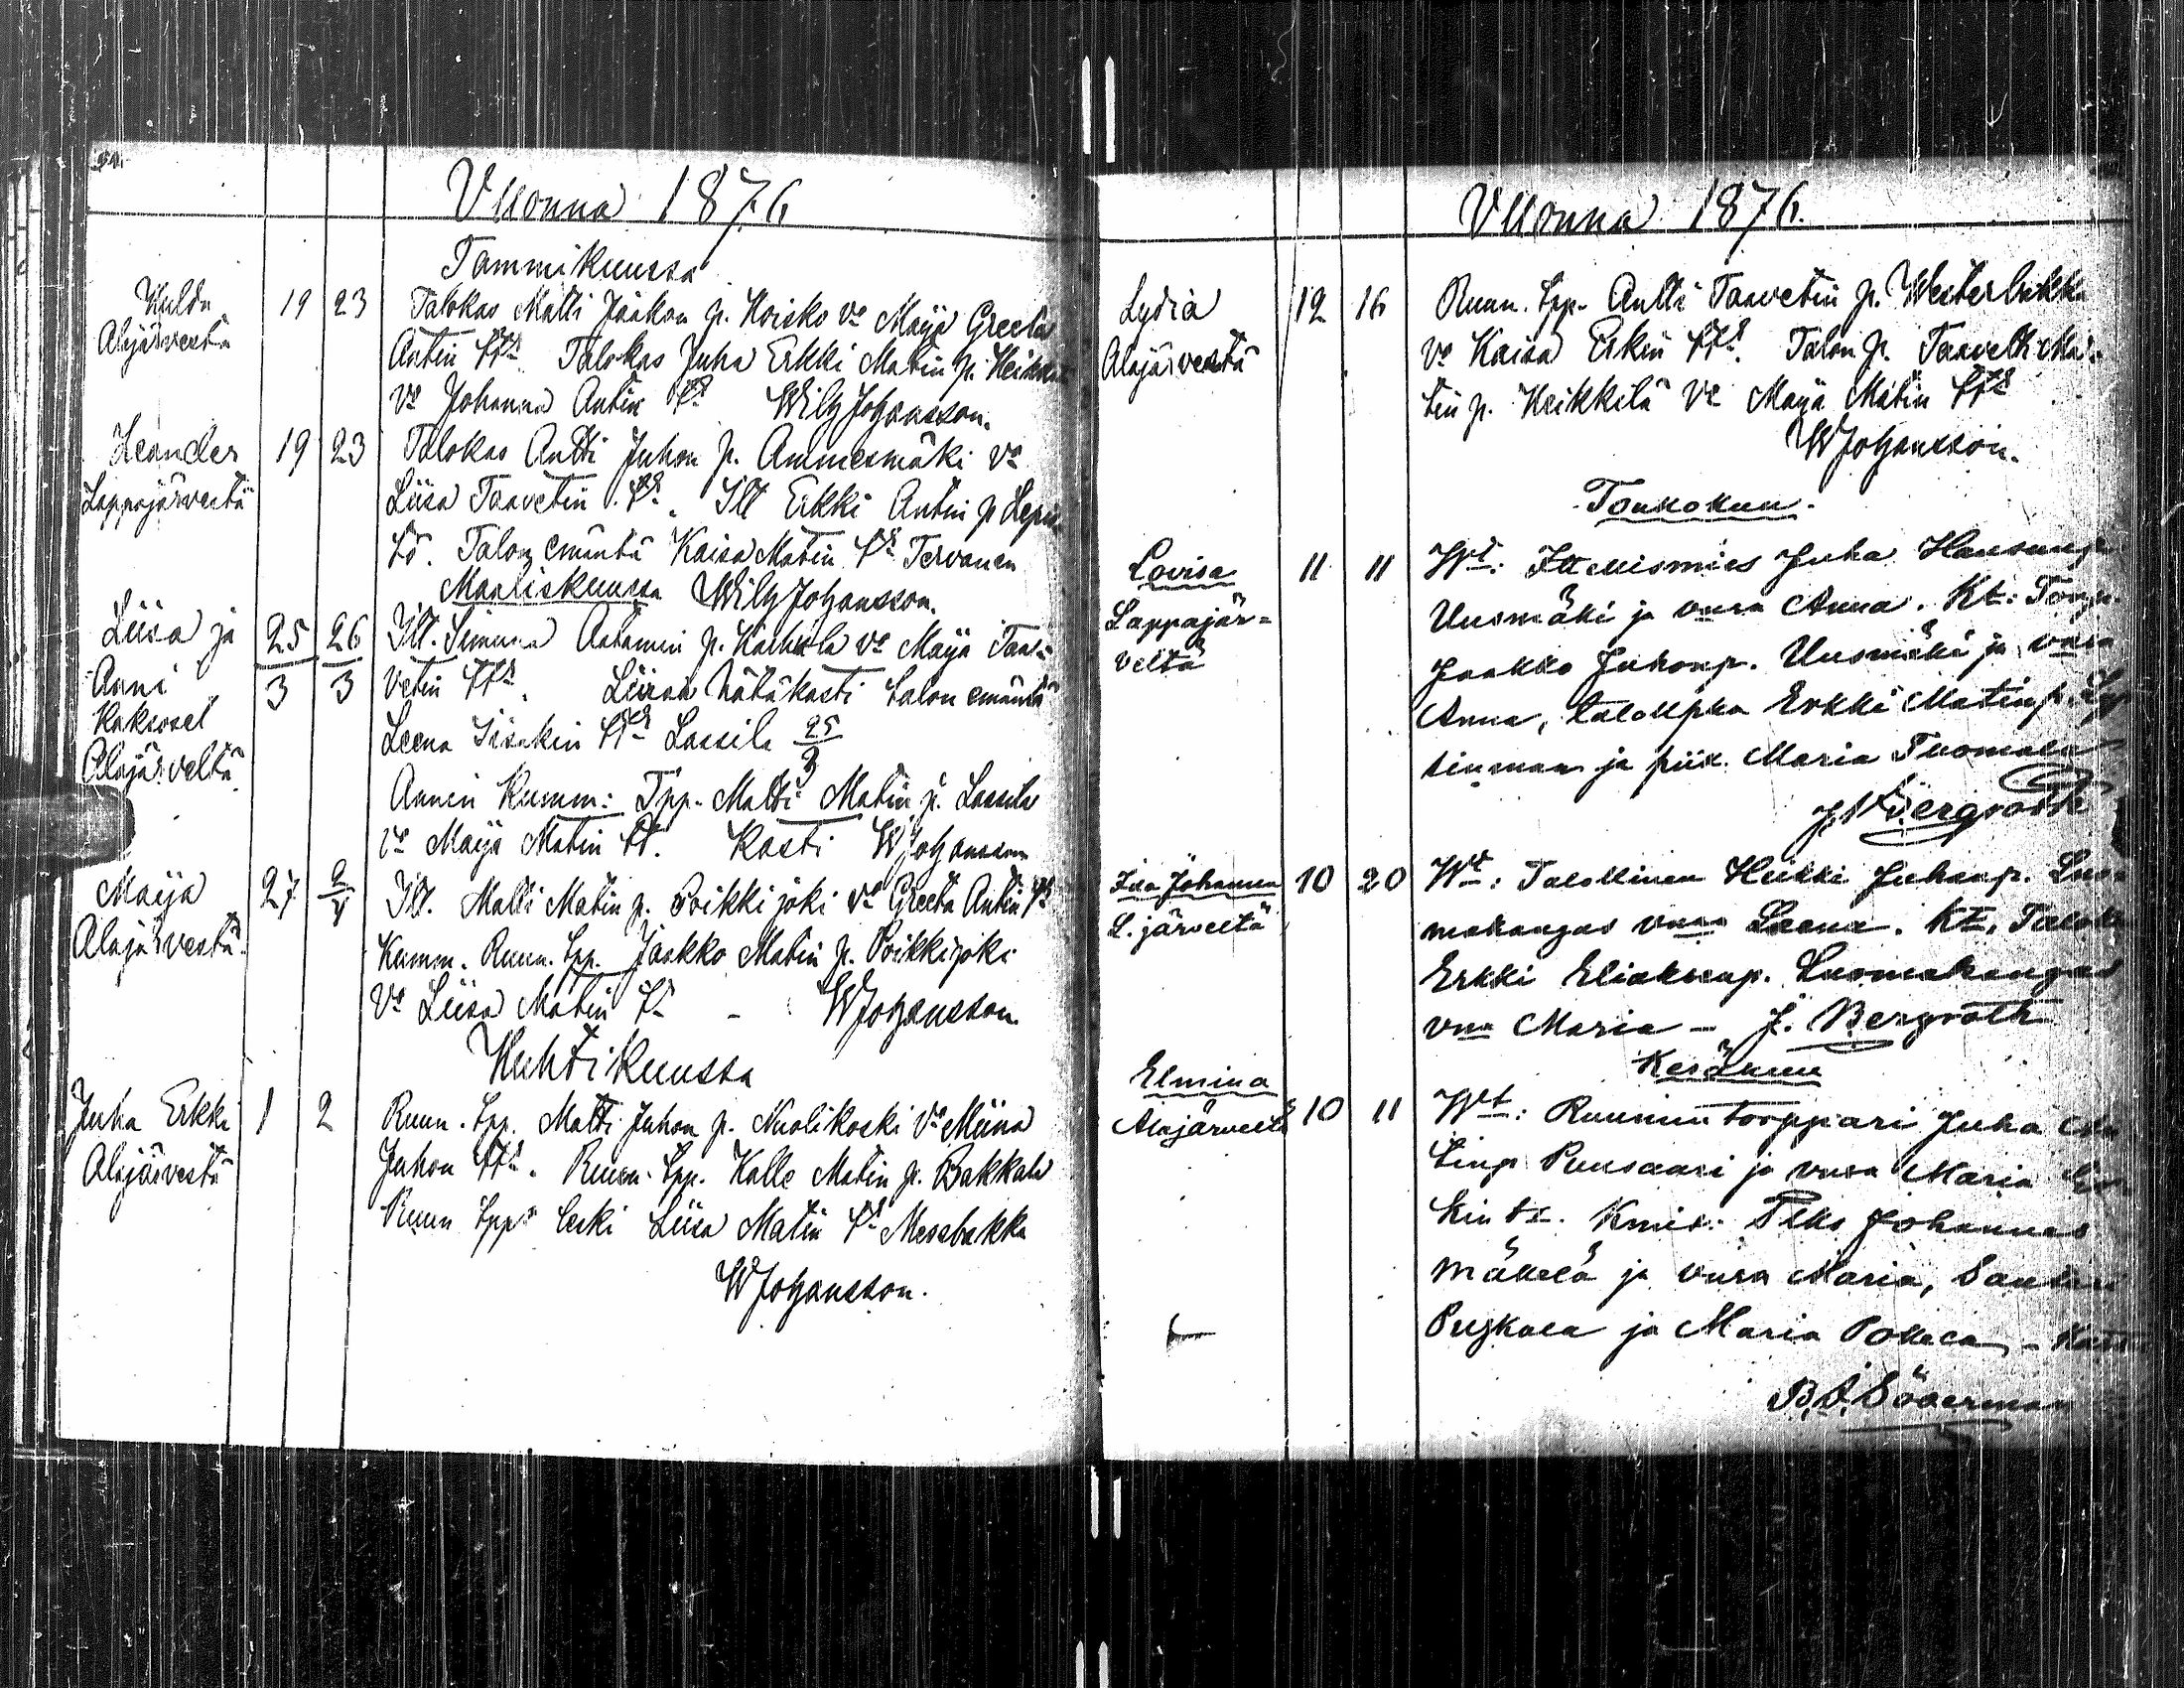 Vuonna 1876
Tammikuussa
Hulda
Alajärvestä
19 23
Talokas Matti Jaakon p. Hoisko vo Maija Greeta
Antin ttr. Talokas Juha Erkki Matin p. Heikki
vo Johanna Antin tr Wilh Johansson.
Leander
Lappajärvestä
19 23
Talokas Antti Juhon p. Ammesmäki vo
Liisa Taavetin tr. Itt Erkki Antin p
Talon emäntä Kaisa Matin tr Tervonen
Maaliskuussa Wilh Johansson.
Liisa ja
Anni
Kaksoset
Alajärveltä
25/3 26/3
Itt. Simuna Aatamin p. vo Maija Taa-
vetin ttr. Liisan hätäkasti talon emäntä
Leena Iisakin ttr Lassila 25/3
Annin Kumm: Tpp. Matti Matin p. Lassila
vo Maija Matin tt. Kasti WJohansson
Maija
Alajärvestä
27 2/4
Itt. Matti Matin p. Poikkijoki vo Greeta Antin tr
Kumm. Ruun. tpp. Jaakko Matin p. Poikkijoki
vo Liisa Matin tr - WJohansson.
Huhtikuussa
Juha Erkki
Alajärvestä
1 2
Ruun. tpp. Matti Juhon p. Nuolikoski vo Miina
Juhon ttr. Ruun. tpp. Kalle Matin p. Bakkala
Ruun tppn leski Liisa Matin tr
WJohansson.
Vuonna 1876.
Lydia
Alajärvestä
12 16
Ruun. tpp. Antti Taavetin p. Westerbakka
vo Kaisa Erkin ttr. Talon p. Taavetti Ma-
tin p. Heikkilä vo Maija Matin ttr
WJohansson.
Toukokuu.
Lovisa
Lappajär=
veltä
11 11
Wt: Itsellismies Juha Hansinp
Uusmäki ja vmo Anna. Kt:
Jaakko Juhonp. Uusmäki ja vmo
Anna, talollpka Erkki Matinp.
ja piix. Maria Tuomala
J. Bergroth
Ida Johanna
L. järveltä
10 20
Wt: Talollinen Heikki Juhanp. Luo-
makangas vmo Leena. Kt.
Erkki Eliaksenp. Luomakangas
vmo Maria - J. Bergroth
Kesäkuu
Elmina
Alajärveltä
10 11
Wt: Ruunun torppari Juha Ma
tinp Puusaari ja vmo Maria
kin tr. Kmit: Johannes
Mäkelä ja vmo Maria,
ja Maria
B. A. Söderman